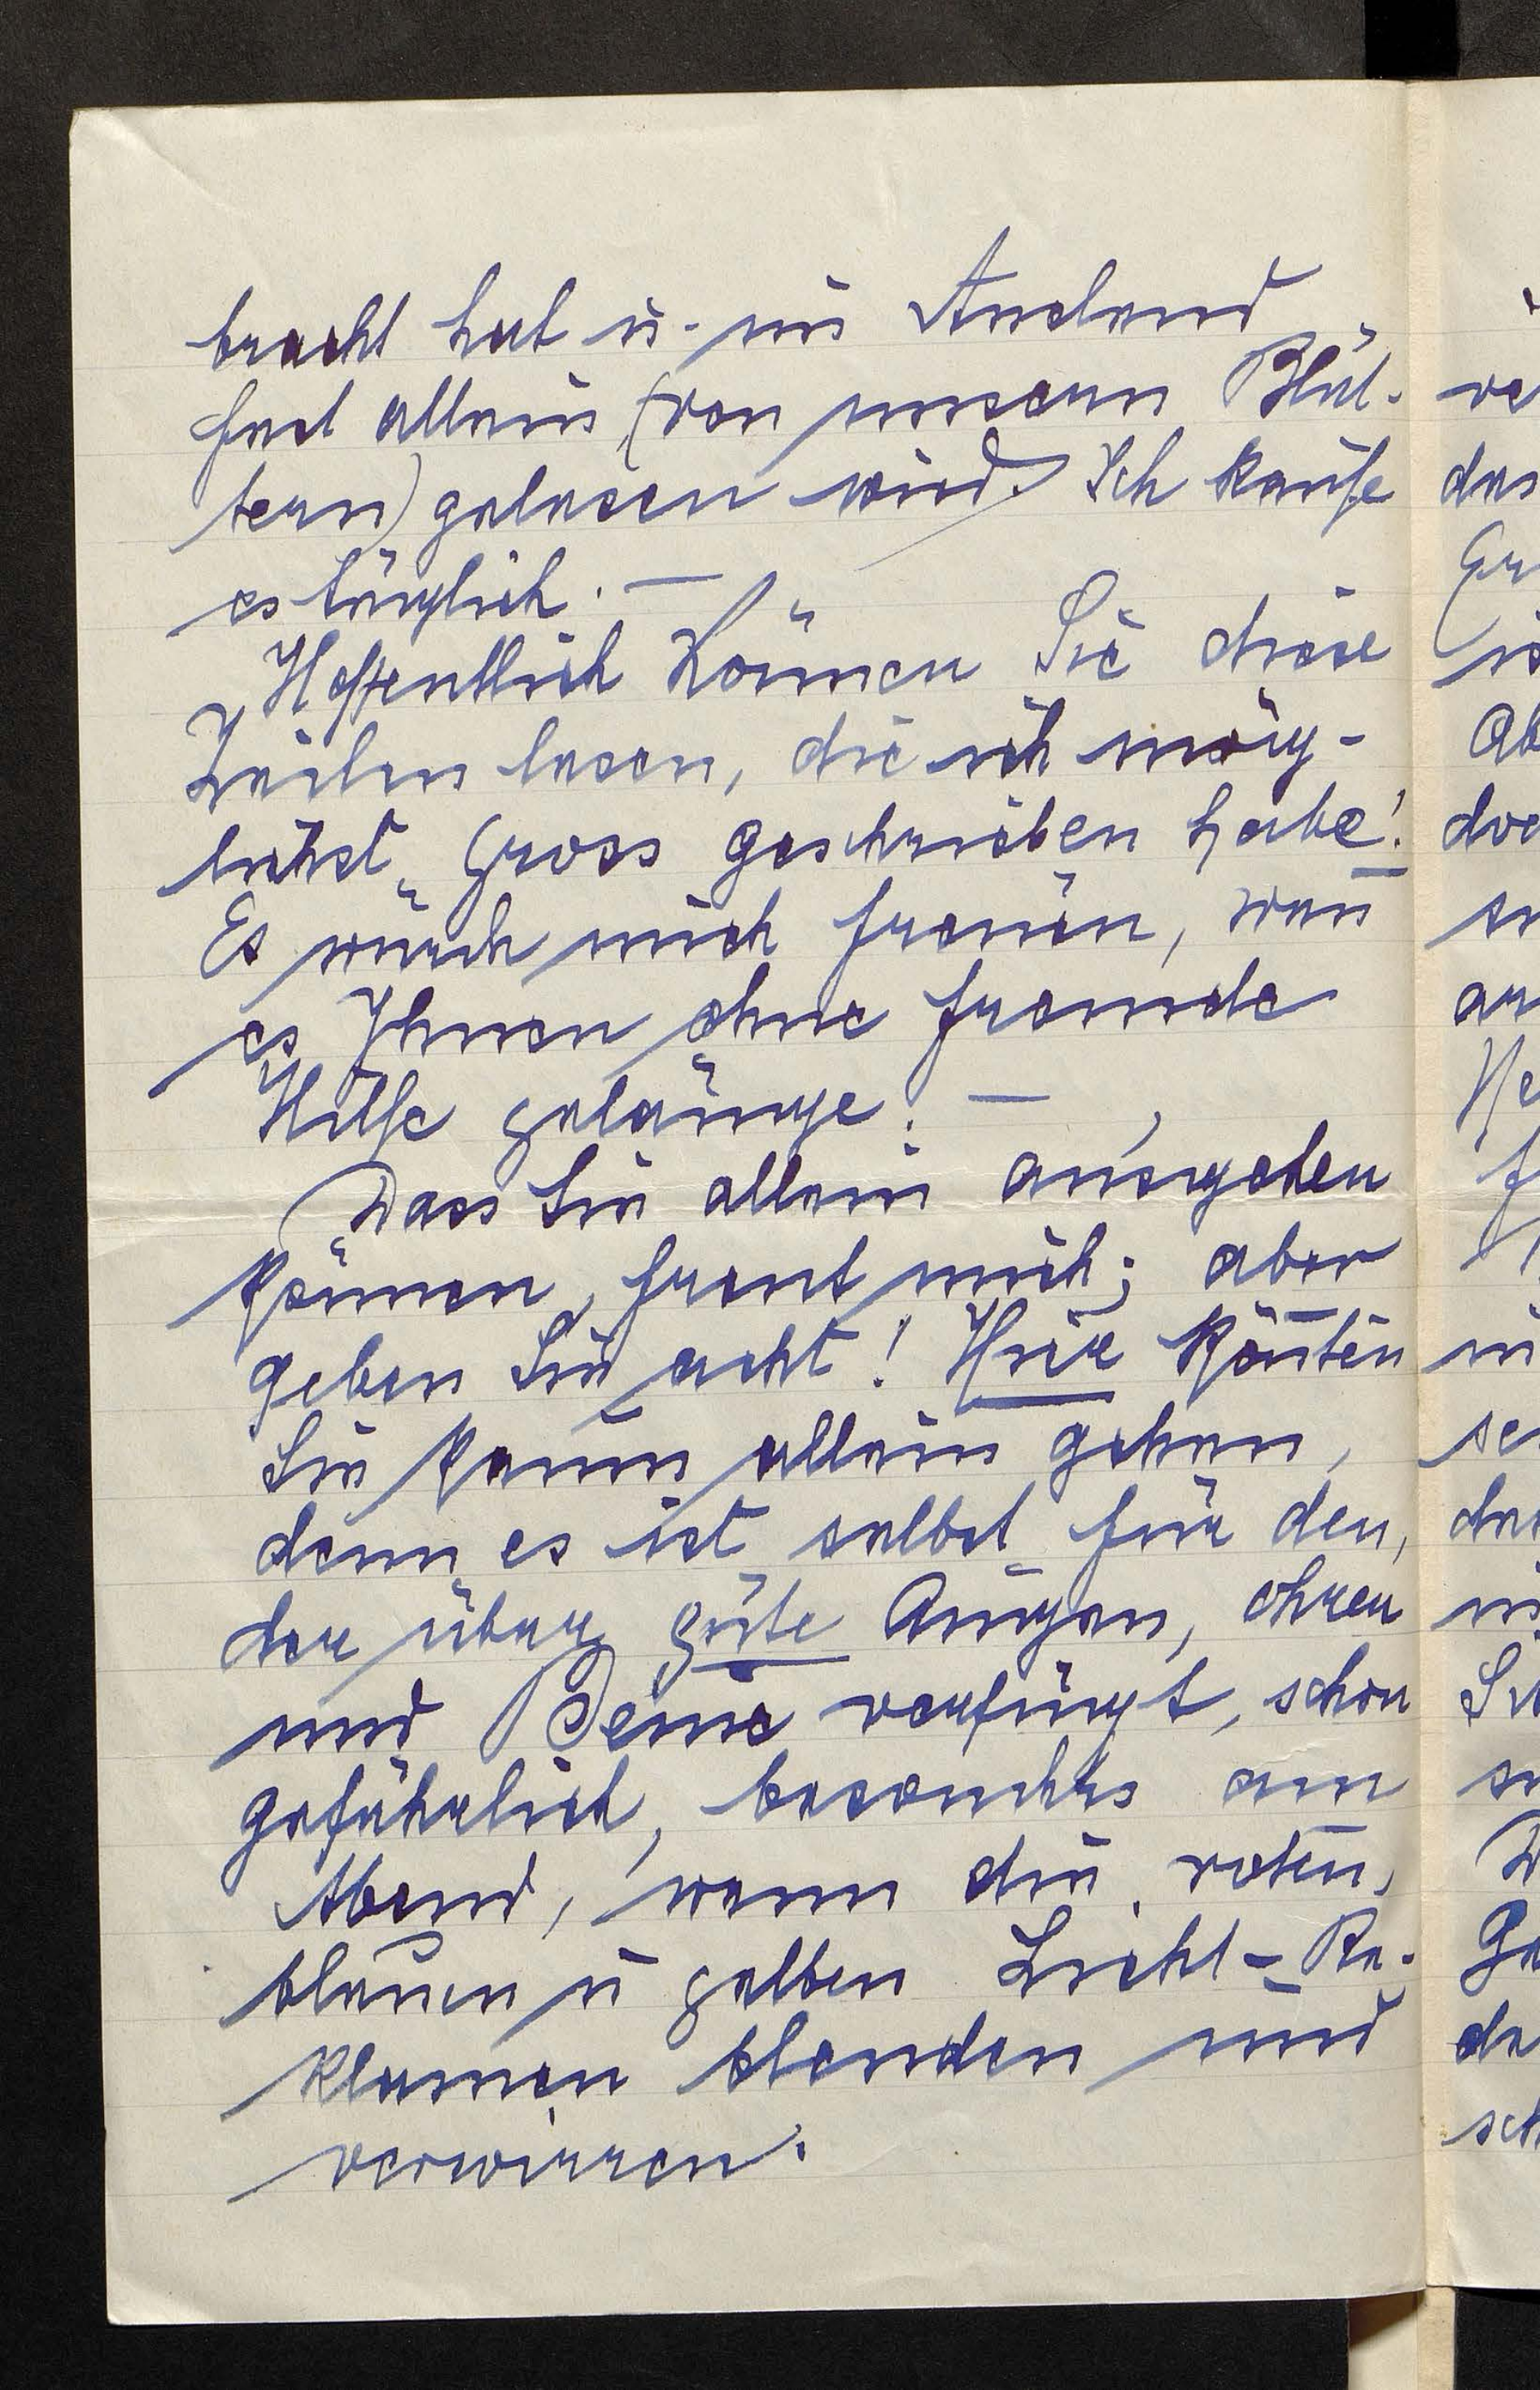 bracht hat u. im Ausland
fast allein (von unseren Blät-
tern) gelesen wird. Ich kaufe
es täglich. —
Hoffentlich können Sie diese
Zeilen lesen, die ich mög-
lichst gross geschrieben habe!
Es würde mich freuen, wenn
es Ihnen ohne fremde
Hilfe gelänge. —
Dass Sie allein ausgehen
können, freut mich; aber
geben Sie acht! Hier könnten
Sie kaum allein gehen,
denn es ist selbst für den,
der über gute Augen, Ohren
und Beine verfügt, schon
gefährlich, besonders am
Abend, wenn die roten,
blauen u gelben Licht-Re-
klamen blenden und
verwirren.